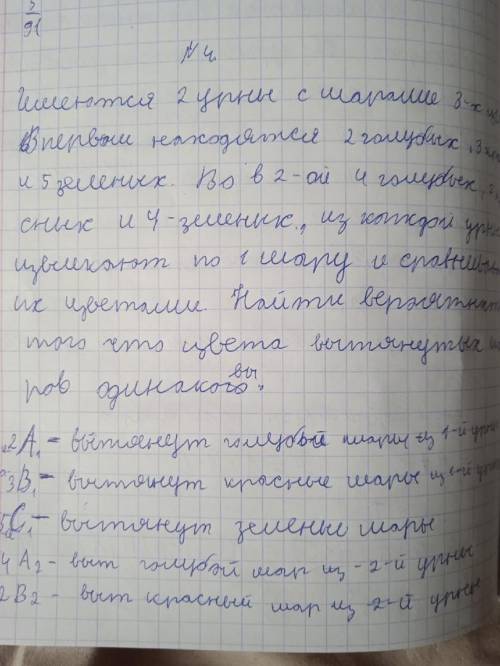 3
91
№ 4.
Имеются 2 урны с шарами 3-х
В первой находятся 2 голубых, 3
и 5 зеленых. Во в 2-ой 4 голубых,
сных и 4-зеленых., из каждой урны
извлекают по 1 шару и сравнивают
их цветами. Найти вероятность
того что цвета вытянутых ша
ров одинаковы.
2A₁ - вытянут голубой шары из 1-й урны
3B₁ - вытянут красные шары из 1-й урны
5C₁ - вытянут зеленые шары
4A₂ - выт голубой шар из - 2-й урны
2B₂ - выт красный шар из 2-й урны